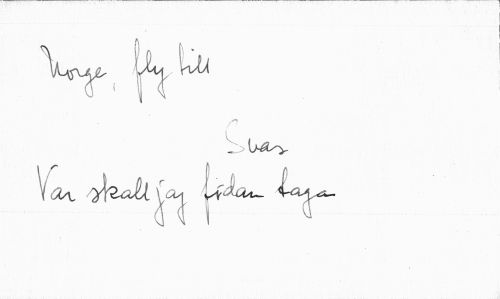 Norge, fly till
Svar
Var skall jag fidan taga